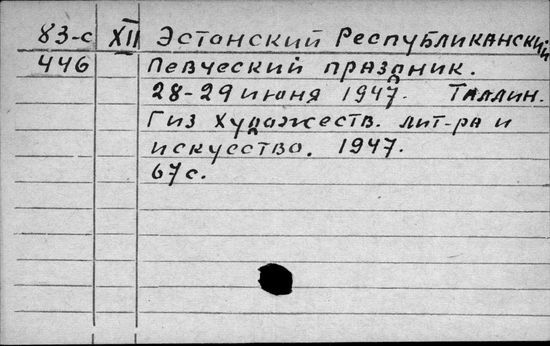 83-с XII Эстонский Республиканский
446 Певческий праздник.
28-29 июня 1947. Таллин.
Гиз художеств. лит-ра и
искусство. 1947.
67 с.